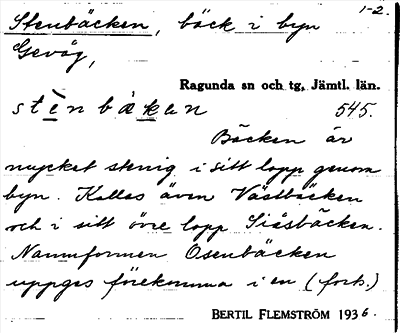 Stenbäcken, bäck i byn 1-2.
Gevåg,
Ragunda sn och tg, Jämtl. län.
stènbækan 545.
Bäcken är
mycket stenig i sitt lopp genom
byn. Kallas även Västbäcken
och i sitt övre lopp Siåsbäcken.
Namnformen Osenbäcken
uppges förekomma i en (fort.)
BERTIL FLEMSTRÖM 1936.